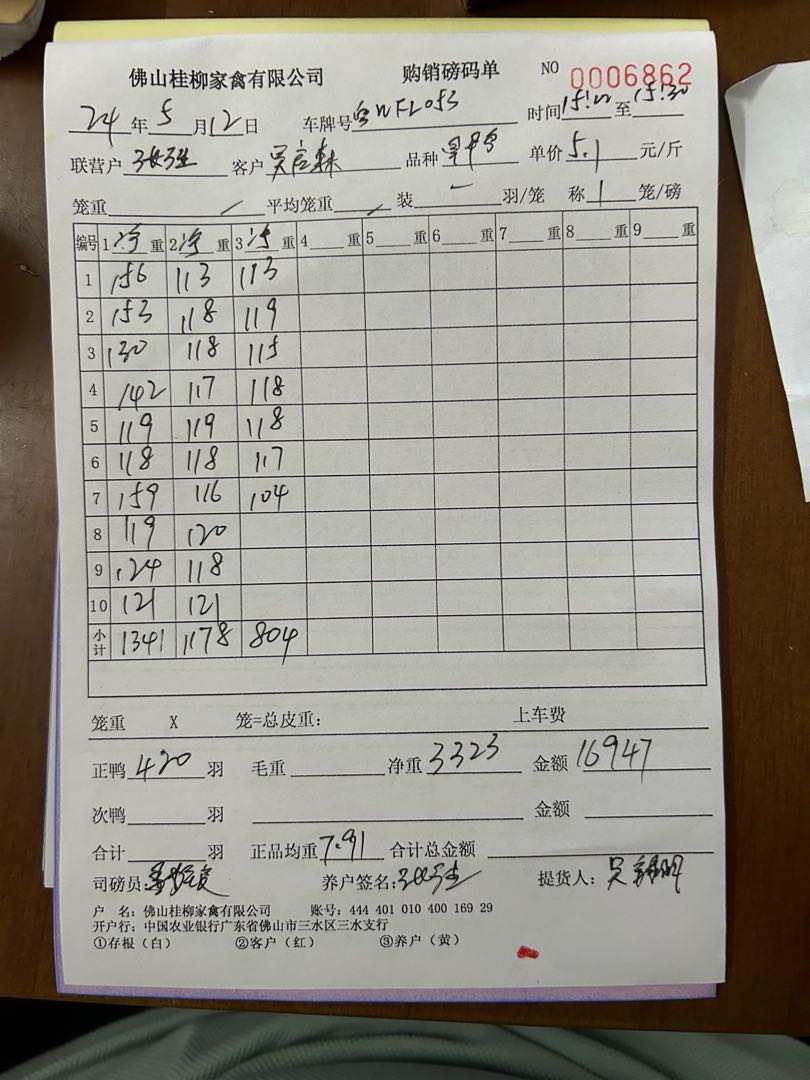 佛山桂柳家禽有限公司 购销磅码单 NO 0006862
24 年 5 月 12 日 车牌号 WFL053 时间 15:22 至 15:30
联营户 客户 吴启森 品种 单价 5.1 元/斤
笼重 / 平均笼重 / 装 一 羽/笼 称 1 笼/磅
编号 1 净 重 2 净 重 3 净 重 4 重 5 重 6 重 7 重 8 重 9 重
1 156 113 113
2 153 118 119
3 130 118 115
4 142 117 118
5 119 119 118
6 118 118 117
7 159 116 104
8 119 120
9 124 118
10 121 121
小计 1341 1178 804
笼重 X 笼=总皮重: 上车费
正鸭 420 羽 毛重 净重 3323 金额 16947
次鸭 羽 金额
合计 羽 正品均重 7.91 合计总金额
司磅员: 养户签名: 提货人: 吴
户 名: 佛山桂柳家禽有限公司 账号: 444 401 010 400 169 29
开户行: 中国农业银行广东省佛山市三水区三水支行
①存根(白) ②客户(红) ③养户(黄)